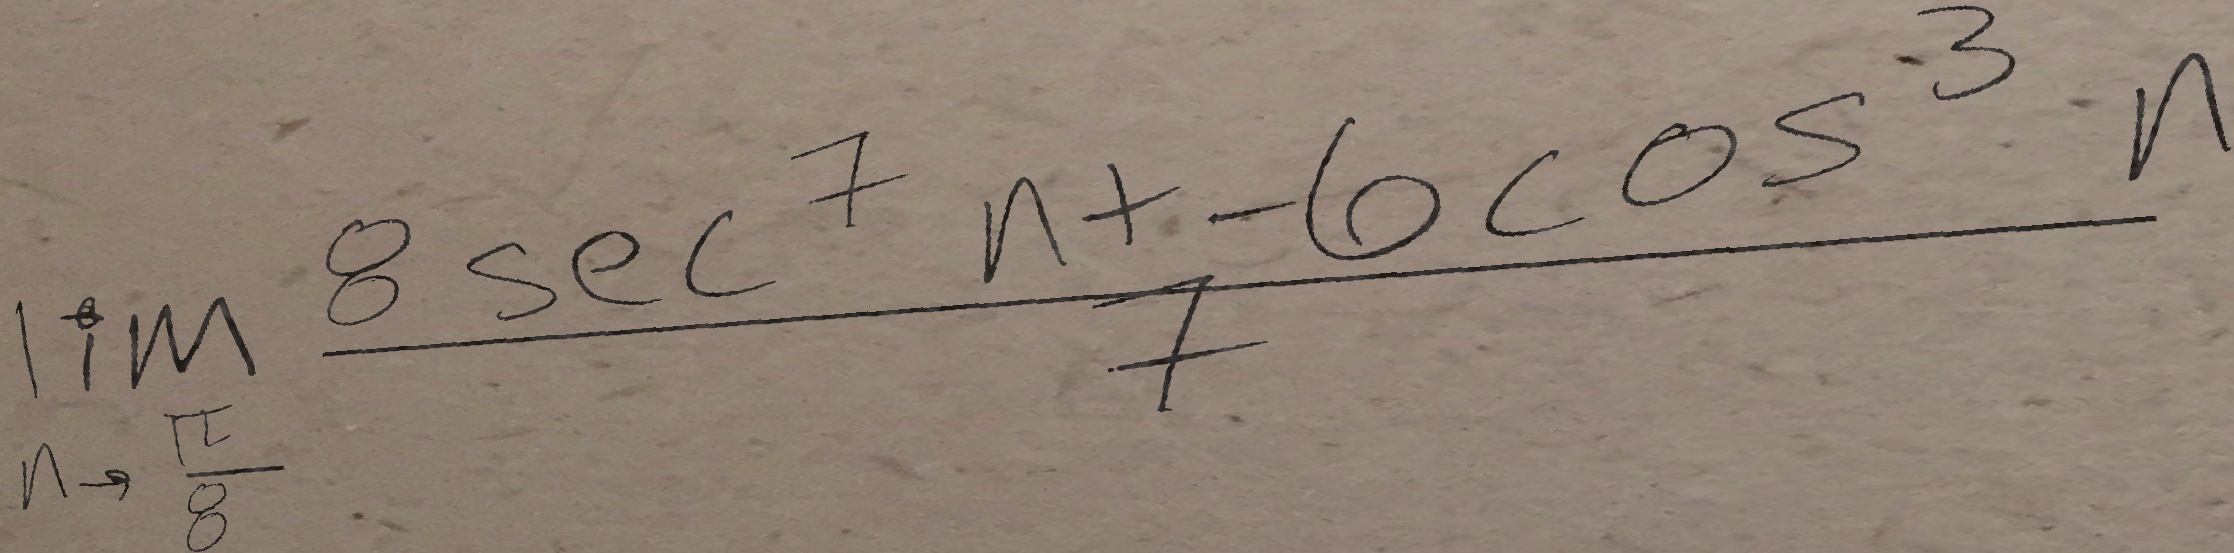 lim_{n→\frac{π}{8}} \frac{8sec^7 n+-6cos^3 n}{7}